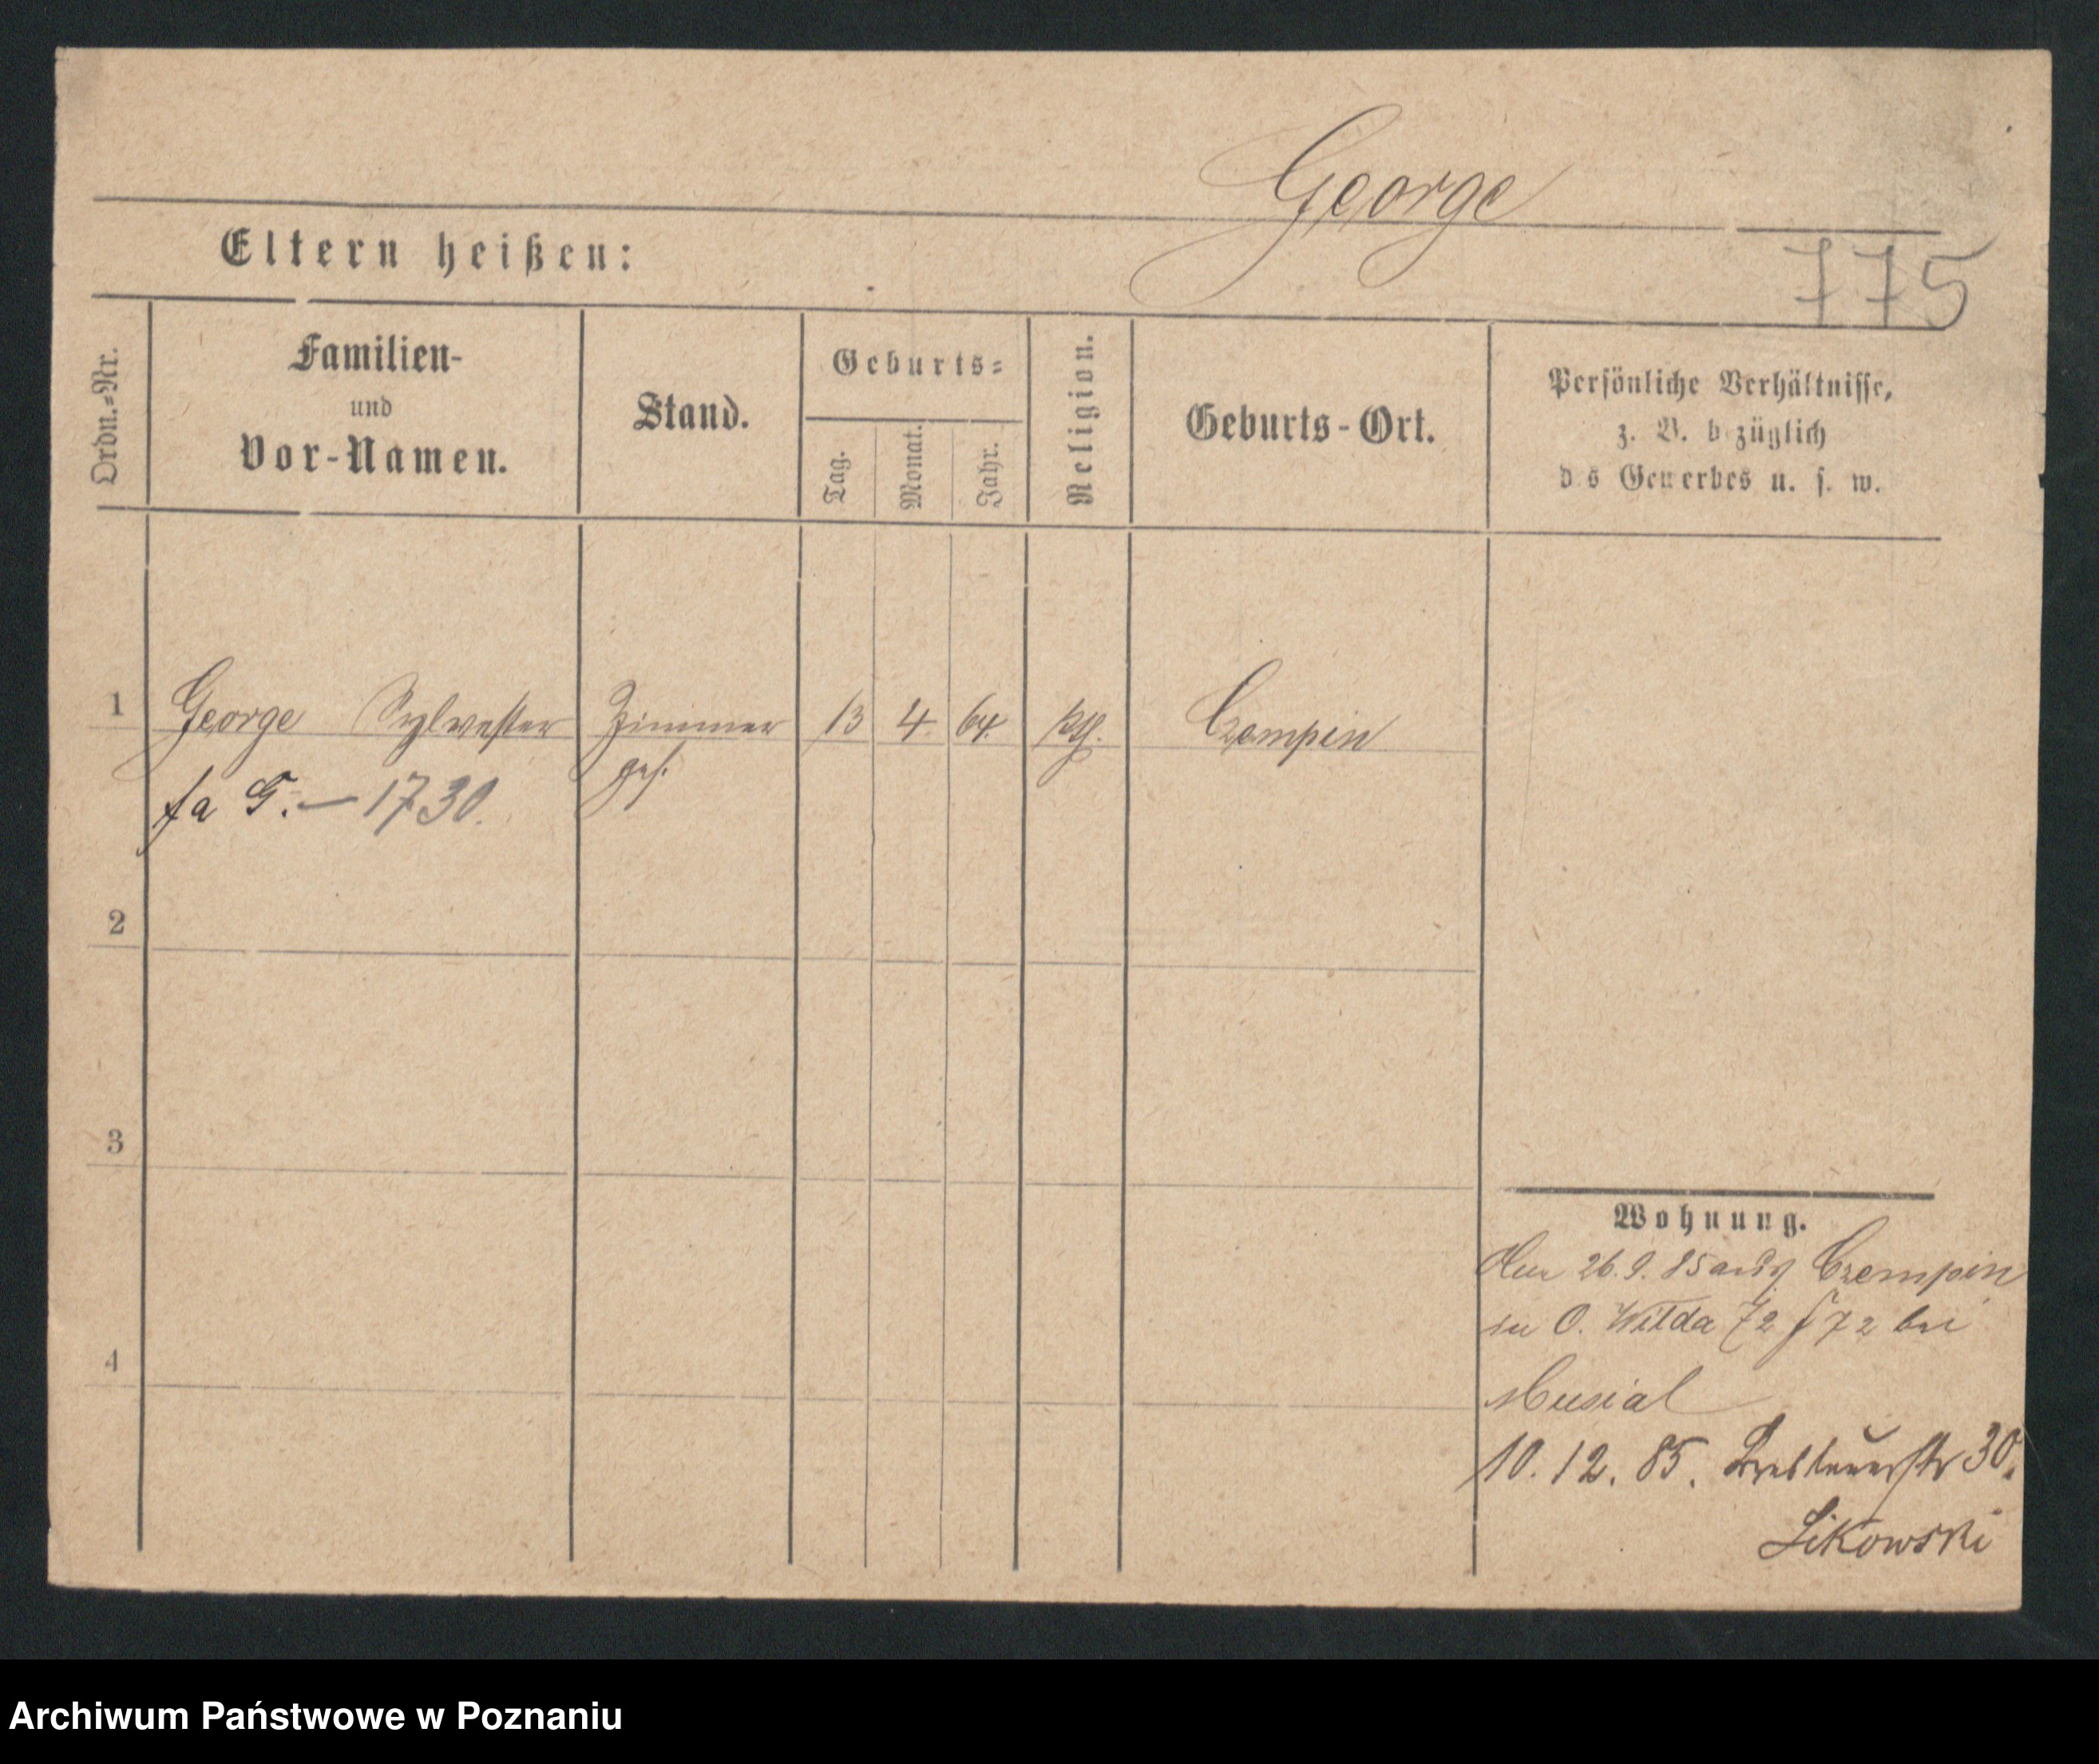 George
775
Eltern heißen:
Ordn.-Nr.
Familien-
und
Vor-Namen.
Stand.
Geburts-
Tag.
Monat.
Jahr.
Religion.
Geburts-Ort.
Persönliche Verhältnisse,
z. B. bezüglich
des Gewerbes u. s. w.
1 George Sylvester Zimmer 13 4 64. kth. Czempin
ges.
fa G. — 1730.
2
3
4
Wohnung.
26. 9. 85 aus Czempin
in O. Wilda 72 bei
Musial
10. 12. 85. 30.
Likowski
Archiwum Państwowe w Poznaniu